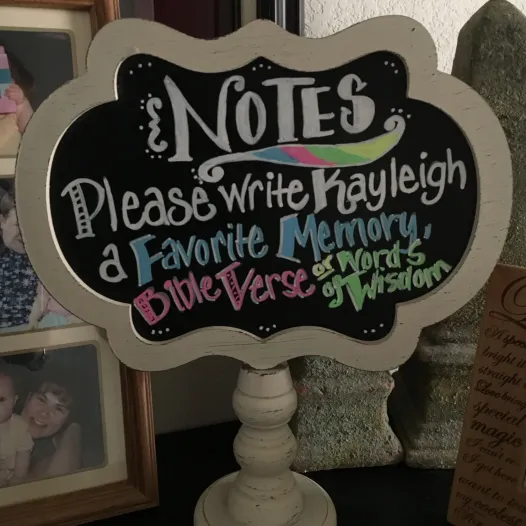 NOTES
Please write Kayleigh
a Favorite Memory,
Bible Verse or Words
of Wisdom
A spec
bright y
straight
Love being
special
magic
I can't
I got here
want to
my cool